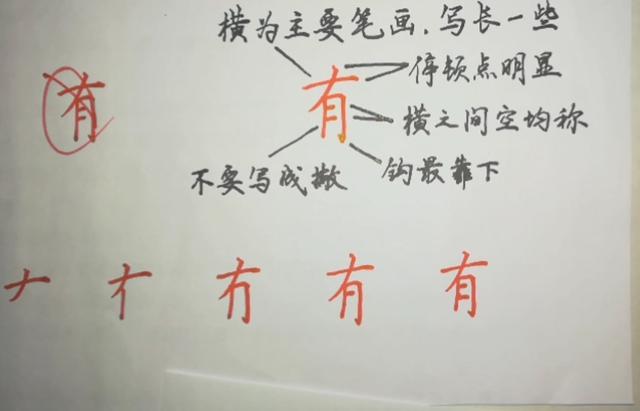 横为主要笔画.写长一些
有
有
停顿点明显
横之间空均称
不要写成撇
钩最靠下
有
有